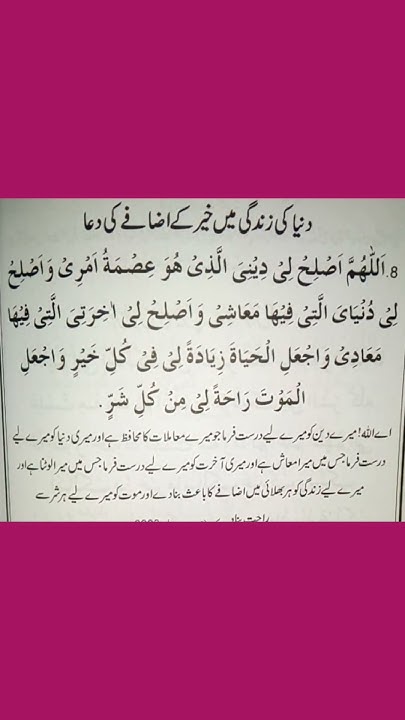 دنیا کی زندگی میں خیر کے اضافے کی دعا
8. اَللّٰهُمَّ اَصْلِحْ لِیْ دِیْنِیَ الَّذِیْ هُوَ عِصْمَةُ اَمْرِیْ وَاَصْلِحْ
لِیْ دُنْیَایَ الَّتِیْ فِیْهَا مَعَاشِیْ وَاَصْلِحْ لِیْ اٰخِرَتِیَ الَّتِیْ فِیْهَا
مَعَادِیْ وَاجْعَلِ الْحَیَاةَ زِیَادَةً لِیْ فِیْ كُلِّ خَیْرٍ وَاجْعَلِ
الْمَوْتَ رَاحَةً لِیْ مِنْ كُلِّ شَرٍّ.
اے اللہ! میرے دین کو میرے لیے درست فرما جو میرے معاملات کا محافظ ہے اور میری دنیا کو میرے لیے
درست فرما جس میں میرا معاش ہے اور میری آخرت کو میرے لیے درست فرما جس میں میرا لوٹنا ہے اور
میرے لیے زندگی کو ہر بھلائی میں اضافے کا باعث بنا دے اور موت کو میرے لیے ہر شر سے
راحت بنا دے